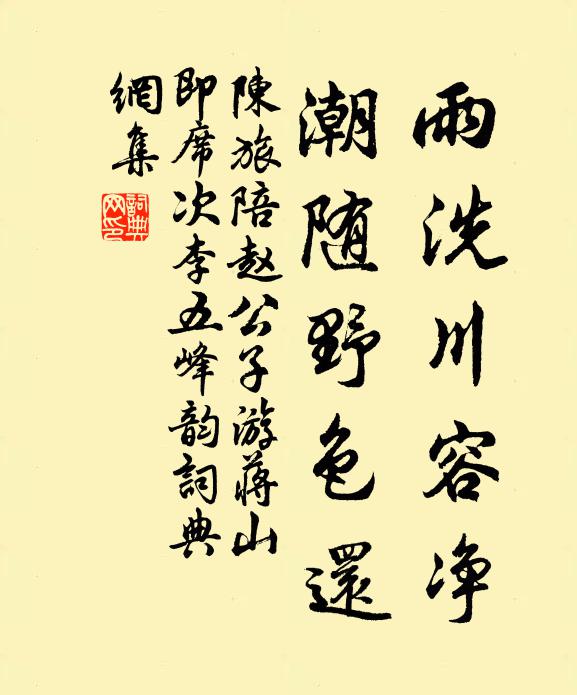 雨洗川容净
潮随野色還
陳旅陪赵公子游蔣山
即席次李五峰韵詞典
網集
詞典网印